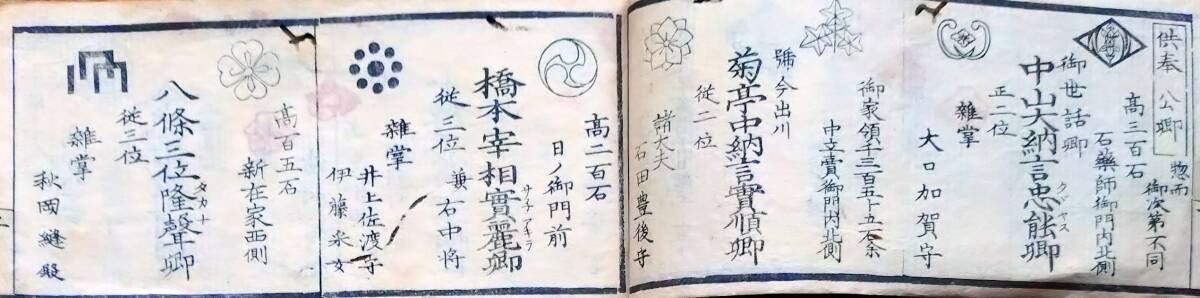 供奉公卿
惣而
御次第不同
高三百石
石藥師御門内北側
御世話卿
中山大納言忠能卿
タダヤス
正二位
雜掌
大口加賀守
御家領千三百五十五石余
中立賣御門内北側
號今出川
菊亭中納言實順卿
從二位
諸大夫
石田豊後守
高二百石
日ノ御門前
橋本宰相實麗卿
サネアキラ
從三位 兼右中将
雜掌
井上佐渡守
伊藤采女
高百五石
新在家西側
八條三位隆聲卿
タカナ
從三位
雜掌
秋岡縫殿